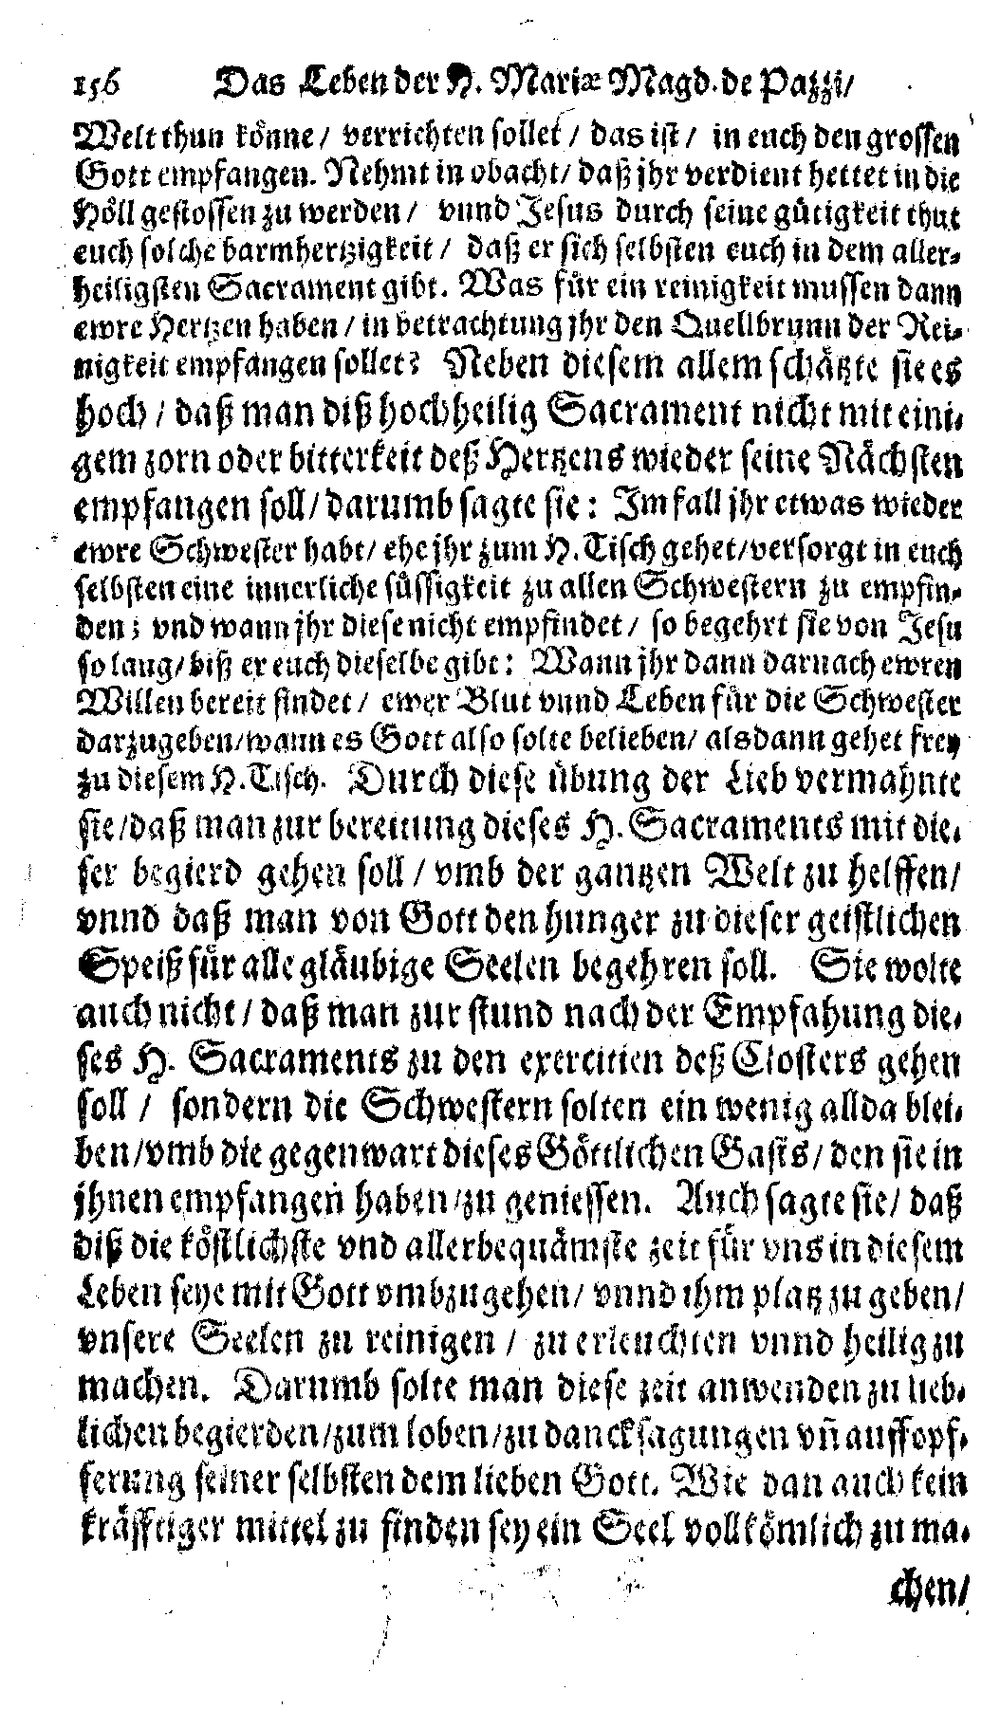 156 Das Leben der H. Mariæ Magd. de Pazzi/
Welt thun könne/ verrichten sollet/ das ist/ in euch den grossen
Gott empfangen. Nehmt in obacht/ daß jhr verdient hettet in die
Höll gestossen zu werden/ vnnd Jesus durch seine gütigkeit thut
euch solche barmhertzigkeit/ daß er sich selbsten euch in dem aller-
heiligsten Sacrament gibt. Was für ein reinigkeit mussen dann
ewre Hertzen haben/ in betrachtung jhr den Quellbrunn der Rei-
nigkeit empfangen sollet? Neben diesem allem schätzte sie es
hoch/ daß man diß hochheilig Sacrament nicht mit eini-
gem zorn oder bitterkeit deß Hertzens wieder seine Nächsten
empfangen soll/ darumb sagte sie: Im fall jhr etwas wieder
ewre Schwester habt/ ehe jhr zum H. Tisch gehet/ versorgt in euch
selbsten eine innerliche süssigkeit zu allen Schwestern zu empfin-
den; vnd wann jhr diese nicht empfindet/ so begehrt sie von Jesu
so lang/ biß er euch dieselbe gibt: Wann jhr dann darnach ewren
Willen bereit findet/ ewer Blut vnnd Leben für die Schwester
darzugeben/ wann es Gott also solte belieben/ alsdann gehet frey
zu diesem H. Tisch. Durch diese übung der Lieb vermahnte
sie/ daß man zur bereitung dieses H. Sacraments mit die-
ser begierd gehen soll/ vmb der gantzen Welt zu helffen/
vnnd daß man von Gott den hunger zu dieser geistlichen
Speiß für alle gläubige Seelen begehren soll. Sie wolte
auch nicht/ daß man zur stund nach der Empfahung die-
ses H. Sacraments zu den exercitien deß Closters gehen
soll/ sondern die Schwestern solten ein wenig allda blei-
ben/ vmb die gegenwart dieses Göttlichen Gasts/ den sie in
jhnen empfangen haben/ zu geniessen. Auch sagte sie/ daß
diß die köstlichste vnd allerbequämste zeit für vns in diesem
Leben seye mit Gott vmbzugehen/ vnnd ihm platz zu geben/
vnsere Seelen zu reinigen/ zu erleuchten vnnd heilig zu
machen. Darumb solte man diese zeit anwenden zu lieb-
lichen begierden/ zum loben/ zu dancksagungen vñ auffopf-
ferung seiner selbsten dem lieben Gott. Wie dan auch kein
kräfftiger mittel zu finden sey ein Seel vollkömlich zu ma-
chen/